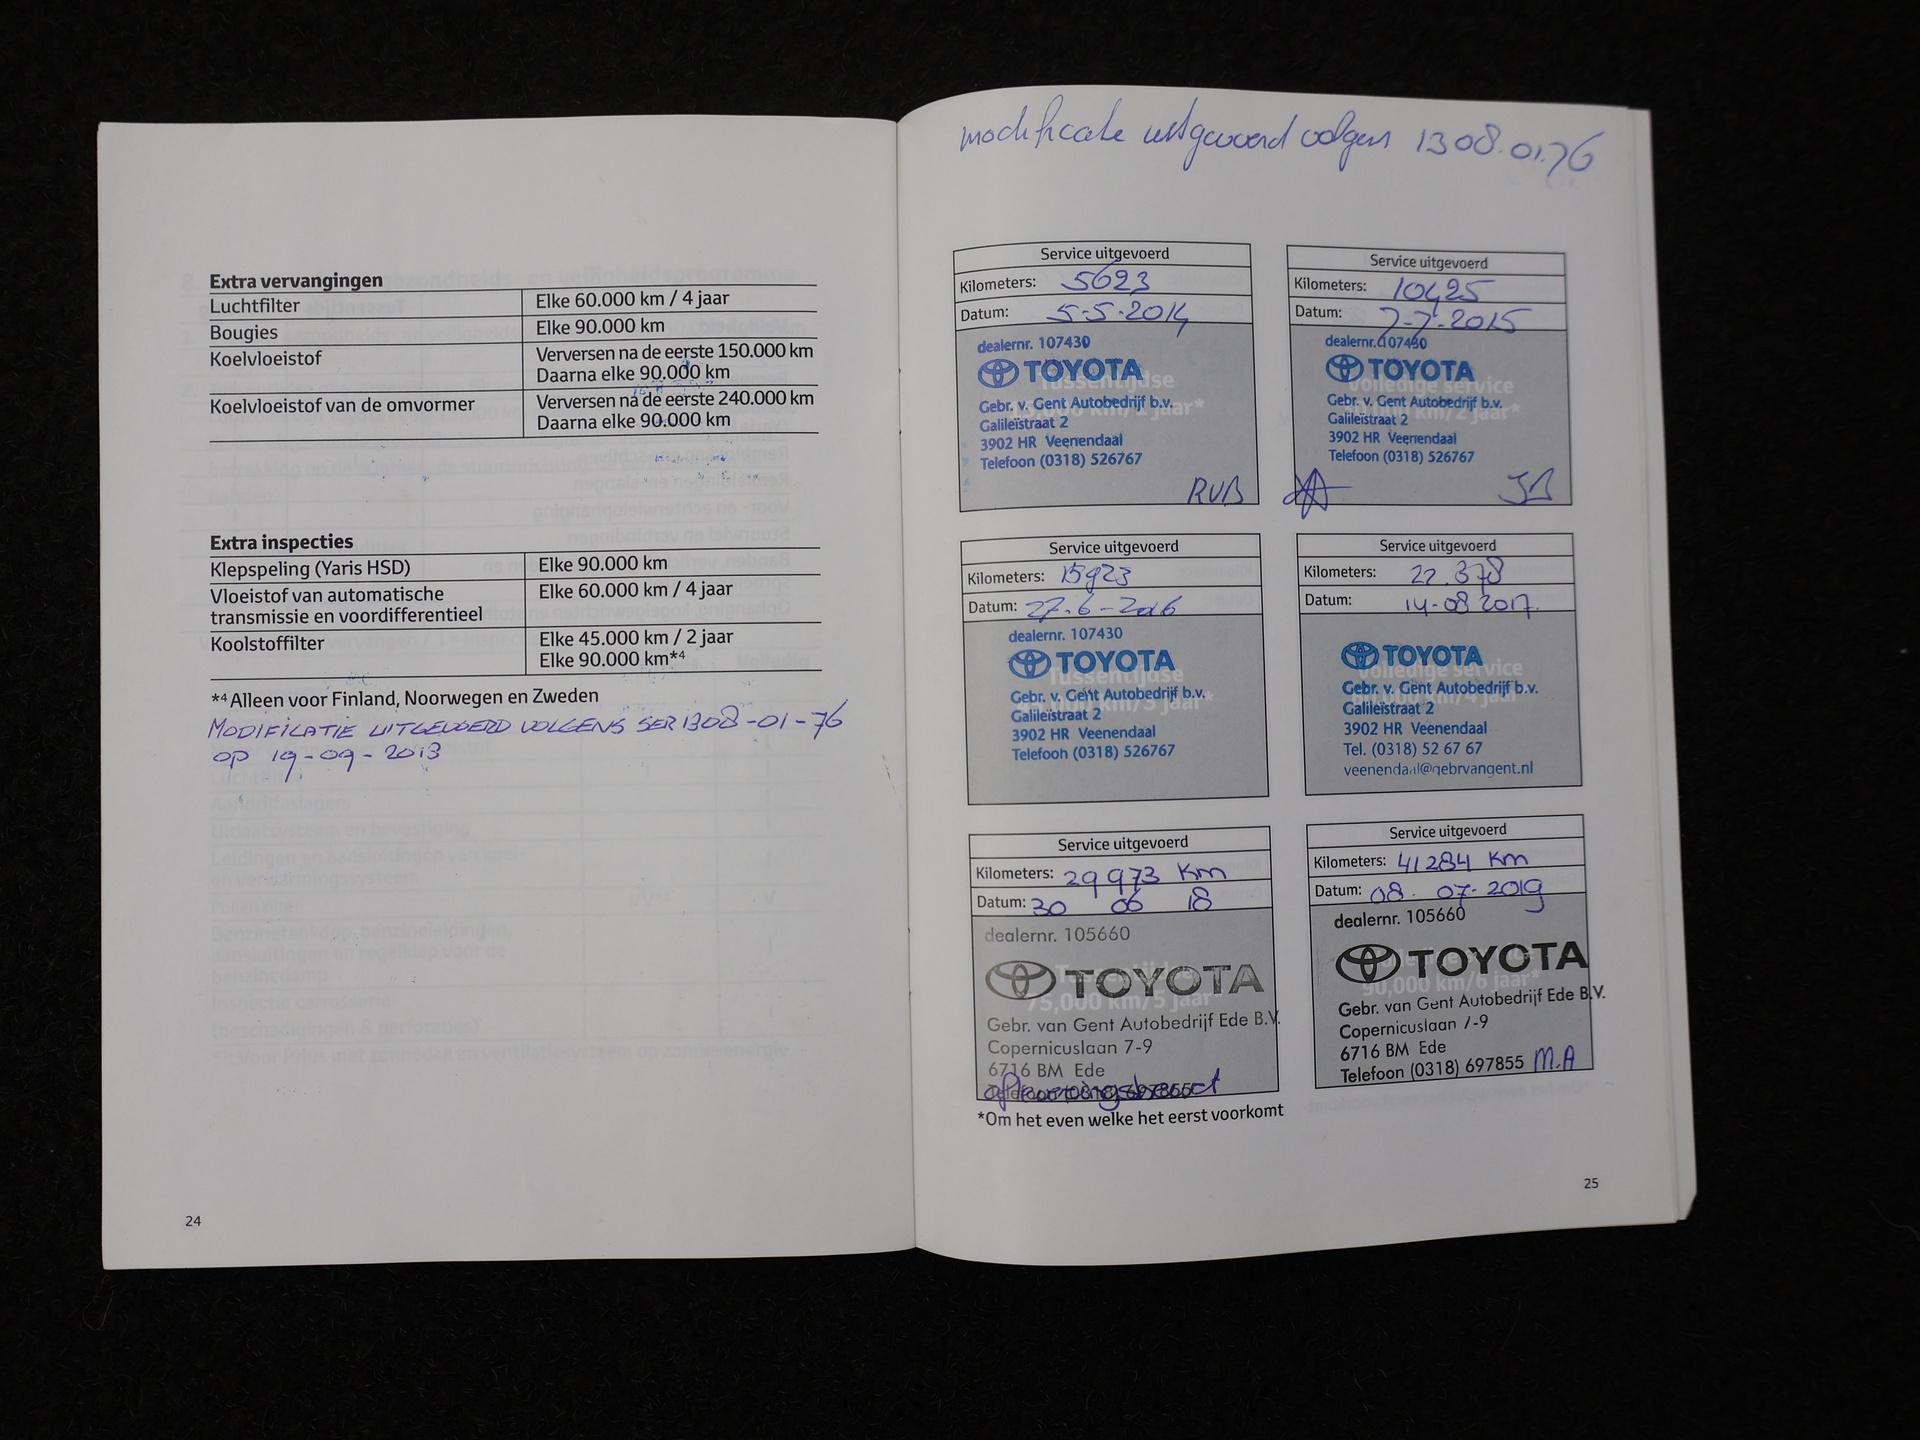 Extra vervangingen
Luchtfilter Elke 60.000 km / 4 jaar
Bougies Elke 90.000 km
Koelvloeistof Verversen na de eerste 150.000 km
Daarna elke 90.000 km
Koelvloeistof van de omvormer Verversen na de eerste 240.000 km
Daarna elke 90.000 km
Extra inspecties
Klepspeling (Yaris HSD) Elke 90.000 km
Vloeistof van automatische Elke 60.000 km / 4 jaar
transmissie en voordifferentieel
Koolstoffilter Elke 45.000 km / 2 jaar
Elke 90.000 km*4
*4 Alleen voor Finland, Noorwegen en Zweden
MODIFICATIE UITGEVOERD VOLGENS SER 1308-01-76
OP 19-09-2013
24
modificatie uitgevoerd volgens 1308.01.76
Service uitgevoerd
Kilometers: 5623
Datum: 5-5-2014
dealernr. 107430
TOYOTA
Tussentijdse
Gebr. v. Gent Autobedrijf b.v.
Galileïstraat 2
3902 HR Veenendaal
Telefoon (0318) 526767
RVB
Service uitgevoerd
Kilometers: 10425
Datum: 7-7-2015
dealernr. 107430
TOYOTA
Volledige service
Gebr. v. Gent Autobedrijf b.v.
Galileïstraat 2
3902 HR Veenendaal
Telefoon (0318) 526767
JB
Service uitgevoerd
Kilometers: 15923
Datum: 27-6-2016
dealernr. 107430
TOYOTA
Tussentijdse
Gebr. v. Gent Autobedrijf b.v.
Galileïstraat 2
3902 HR Veenendaal
Telefoon (0318) 526767
Service uitgevoerd
Kilometers: 22.378
Datum: 14-08 2017
TOYOTA
Volledige service
Gebr. v. Gent Autobedrijf b.v.
Galileïstraat 2
3902 HR Veenendaal
Tel. (0318) 52 67 67
veenendaal@gebrvangent.nl
Service uitgevoerd
Kilometers: 29973 Km
Datum: 30 06 18
dealernr. 105660
TOYOTA
Tussentijdse
75,000 km/5 jaar*
Gebr. van Gent Autobedrijf Ede B.V.
Copernicuslaan 7-9
6716 BM Ede
Telefoon (0318) 697855
Service uitgevoerd
Kilometers: 41284 Km
Datum: 08. 07-2019
dealernr. 105660
TOYOTA
90,000 km/6 jaar*
Gebr. van Gent Autobedrijf Ede B.V.
Copernicuslaan 7-9
6716 BM Ede
Telefoon (0318) 697855 M.A
*Om het even welke het eerst voorkomt
25